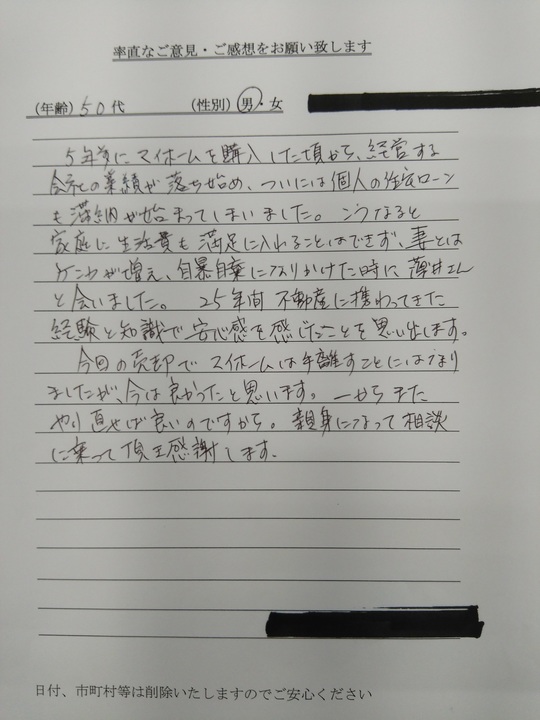 率直なご意見・ご感想をお願い致します
(年齢) 50代 (性別) 男・女
5年前にマイホームを購入した頃から、経営する
会社の業績が落ち始め、ついには個人の住宅ローン
も滞納が始まってしまいました。こうなると
家庭に生活費も満足に入れることはできず、妻とは
ケンカが増え、自暴自棄になりかけた時に薄井さん
と会いました。25年間不動産に携わってきた
経験と知識で安心感を感じたことを思い出します。
今回の売却でマイホームは手離すことにはなり
ましたが、今は良かったと思います。一からまた
やり直せば良いのですから。親身になって相談
に乗って頂き感謝します。
日付、市町村等は削除いたしますのでご安心ください